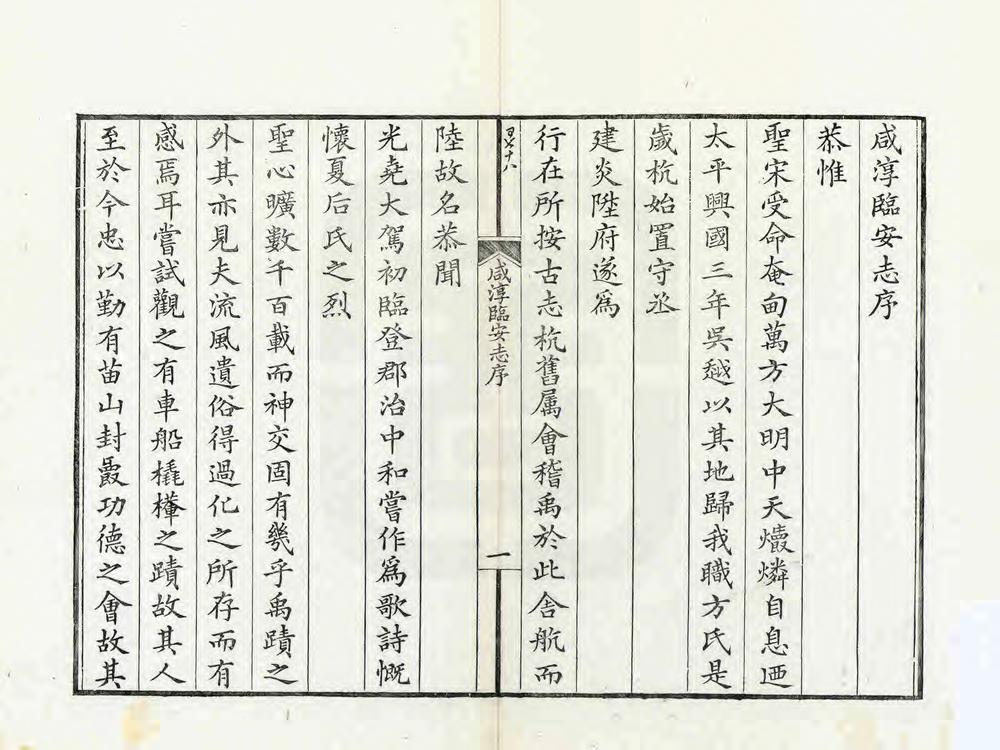 咸淳臨安志序
恭惟
聖宋受命奄甸萬方大明中天爝燐自息迺
太平興國三年吳越以其地歸我職方氏是
歲杭始置守丞
建炎陞府遂爲
行在所按古志杭舊属會稽禹於此舍航而
咸淳臨安志序
一
陸故名恭聞
光堯大駕初臨登郡治中和嘗作爲歌詩慨
懷夏后氏之烈
聖心曠數千百載而神交固有幾乎禹蹟之
外其亦見夫流風遺俗得過化之所存而有
感焉耳嘗試觀之有車船橇檋之蹟故其人
至於今忠以勤有苗山封爵功德之會故其